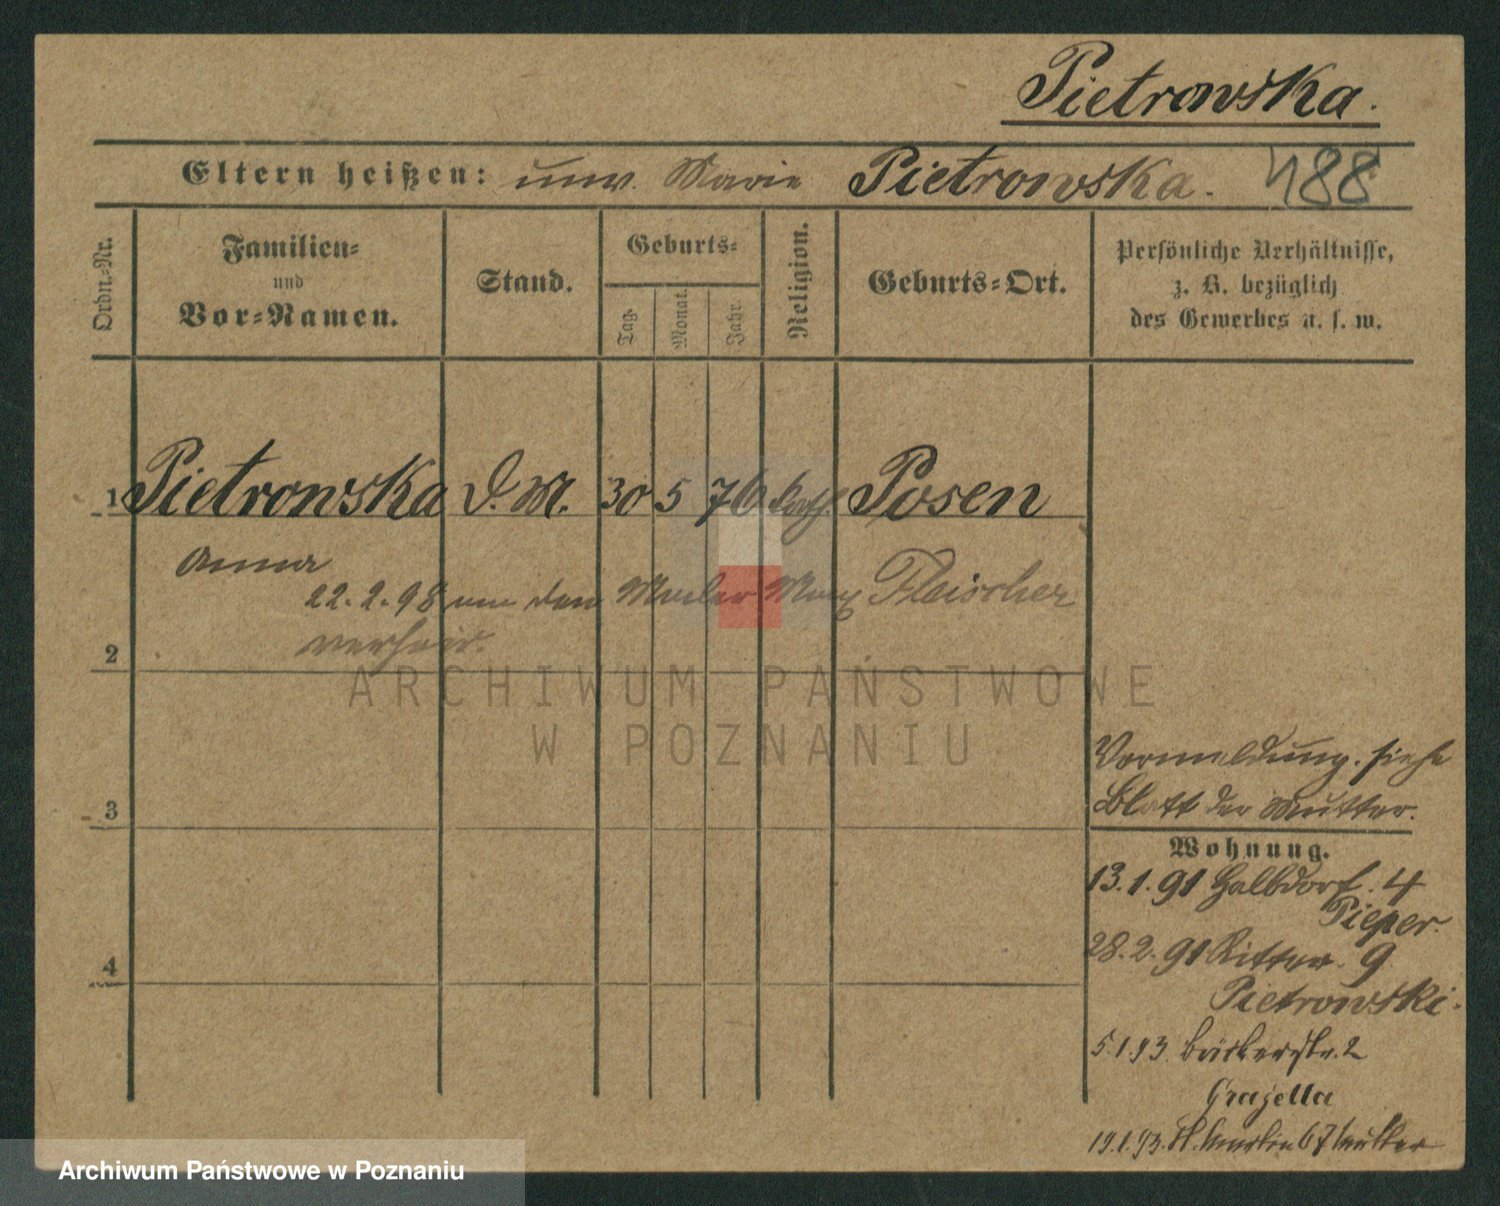 Pietrowska.
Eltern heißen: unv. Marie Pietrowska. 488
Ordn.-Nr.
Familien-
und
Vor-Namen.
Stand.
Geburts-
Tag.
Monat.
Jahr.
Religion.
Geburts-Ort.
Persönliche Verhältnisse,
z. B. bezüglich
des Gewerbes u. s. w.
1 Pietrowska D. M. 30 5 76 kath. Posen
Anna
22.2.98 an den Maler Max Fleischer
verheir.
2
ARCHIWUM PAŃSTWOWE
W POZNANIU
3
4
Vormeldung. siehe
Blatt der Mutter.
Wohnung.
13.1.91 Halbdorf. 4
Pieper.
28.2.91 Ritter. 9
Pietrowski.
5.1.93 Bäckerstr. 2
Grajetta
19.1.93. St. Martin 67 Mutter
Archiwum Państwowe w Poznaniu